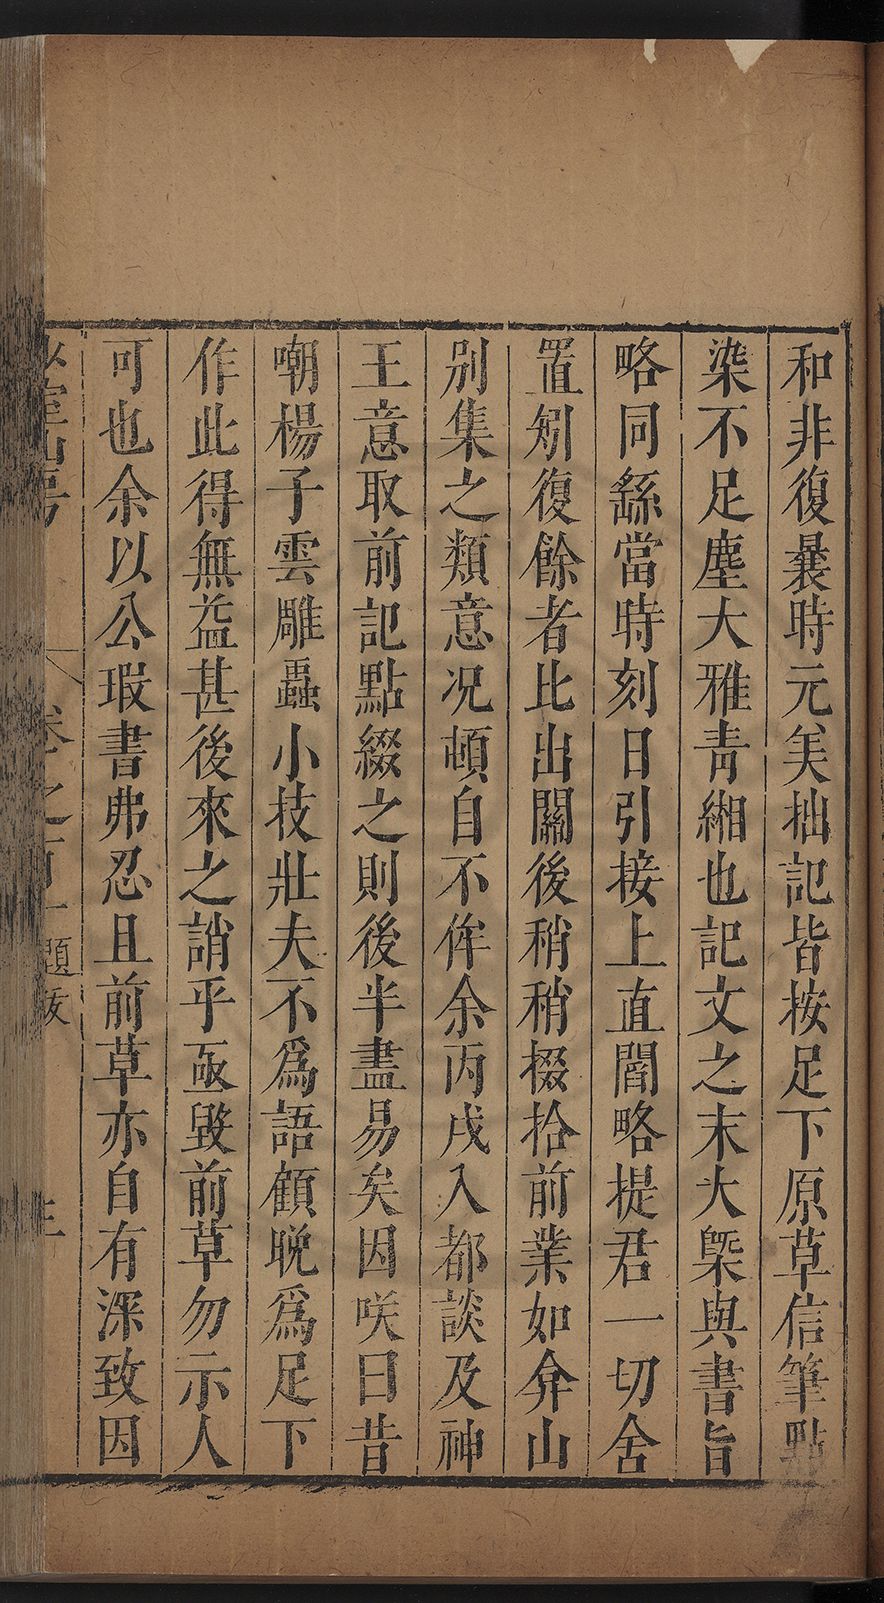 和非復曩時元美拙記皆按足下原草信筆點
染不足塵大雅青緗也記文之末大槩與書旨
略同繇當時刻日引接上直閣略提君一切舍
置矧復餘者比出關後稍稍掇拾前業如弇山
別集之類意况頓自不侔余丙戌入都談及神
王意取前記點綴之則後半盡易矣因咲曰昔
嘲楊子雲雕蟲小技壯夫不爲語顧晚爲足下
作此得無益甚後來之誚乎亟毀前草勿示人
可也余以公瑕書弗忍且前草亦自有深致因
少室山房 卷之百一 題跋 三